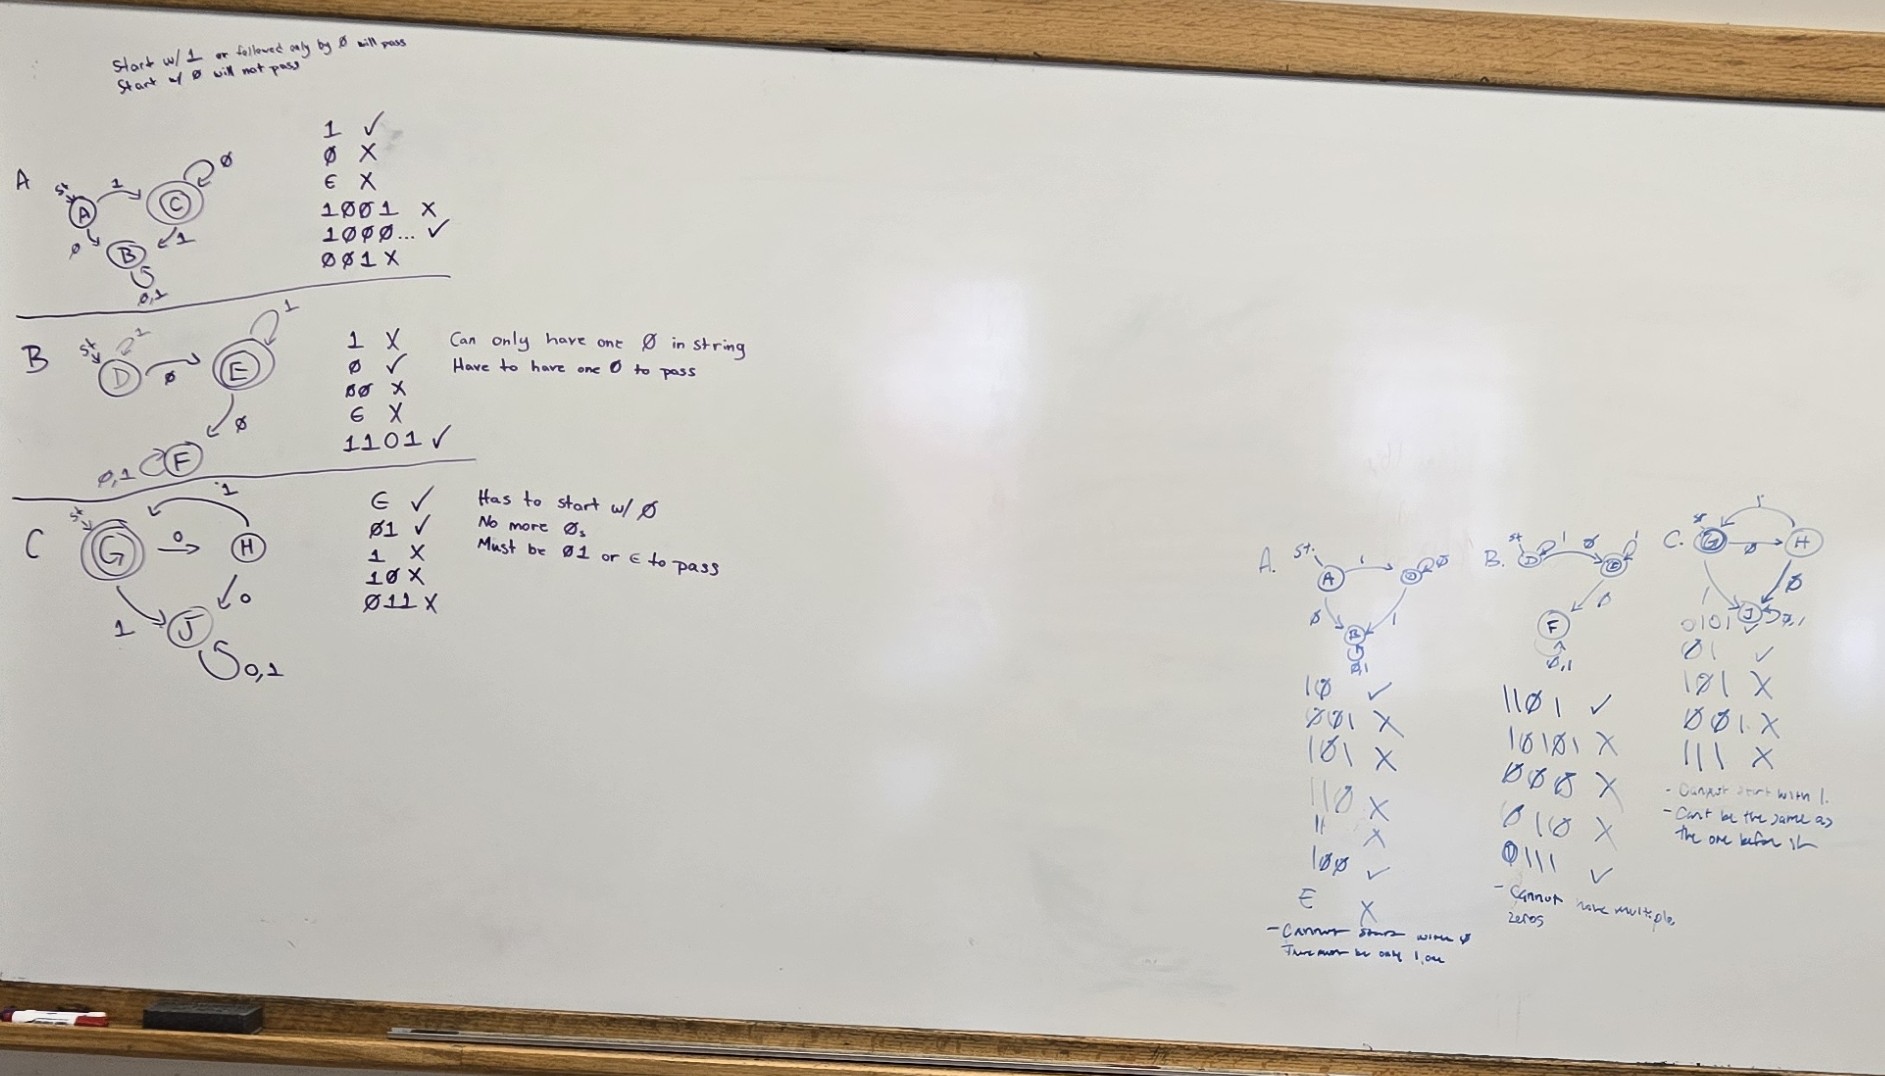 Start w/ 1 or followed only by Ø will pass
Start w/ Ø will not pass
A
st
A
1
C
Ø
Ø
B
1
Ø,1
1 ✓
Ø X
ϵ X
1ØØ1 X
1ØØØ... ✓
ØØ1 X
B
st
D
1
Ø
E
1
Ø
F
Ø,1
1 X
Ø ✓
ØØ X
ϵ X
1101 ✓
Can only have one Ø in string
Have to have one Ø to pass
C
st
G
0
H
1
1
0
J
0,1
ϵ ✓
Ø1 ✓
1 X
1Ø X
Ø11 X
Has to start w/ Ø
No more Øs
Must be Ø1 or ϵ to pass
A.
st.
A
1
Ø
Ø
B
1
Ø,1
1Ø ✓
ØØ1 X
1Ø1 X
11Ø X
11 X
1ØØ ✓
E X
- Cannot start with Ø
There must be only 1, one
B.
st
D
1
Ø
E
1
Ø
F
Ø,1
11Ø1 ✓
1Ø1Ø1 X
ØØØ X
Ø11Ø X
Ø111 ✓
- Cannot have multiple
zeros
C.
st
G
Ø
H
1
1
Ø
J
Ø,1
0101 ✓
Ø1 ✓
1Ø1 X
ØØ1 X
111 X
- Cannot start with 1.
- Can't be the same as
the one before it